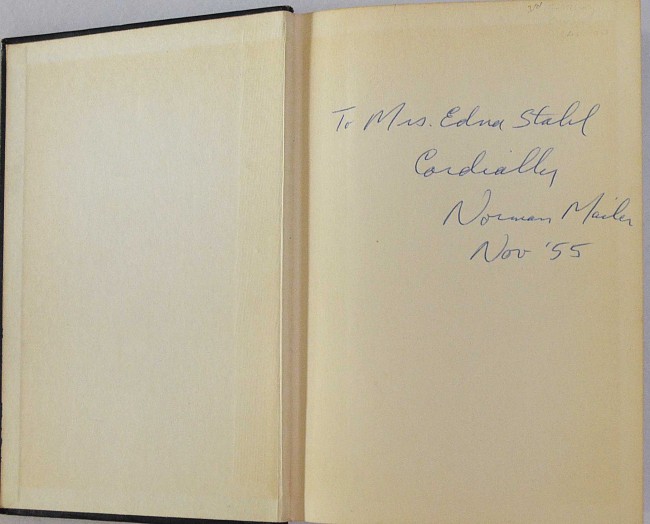 To Mrs. Edna Stahl
Cordially
Norman Mailer
Nov '55